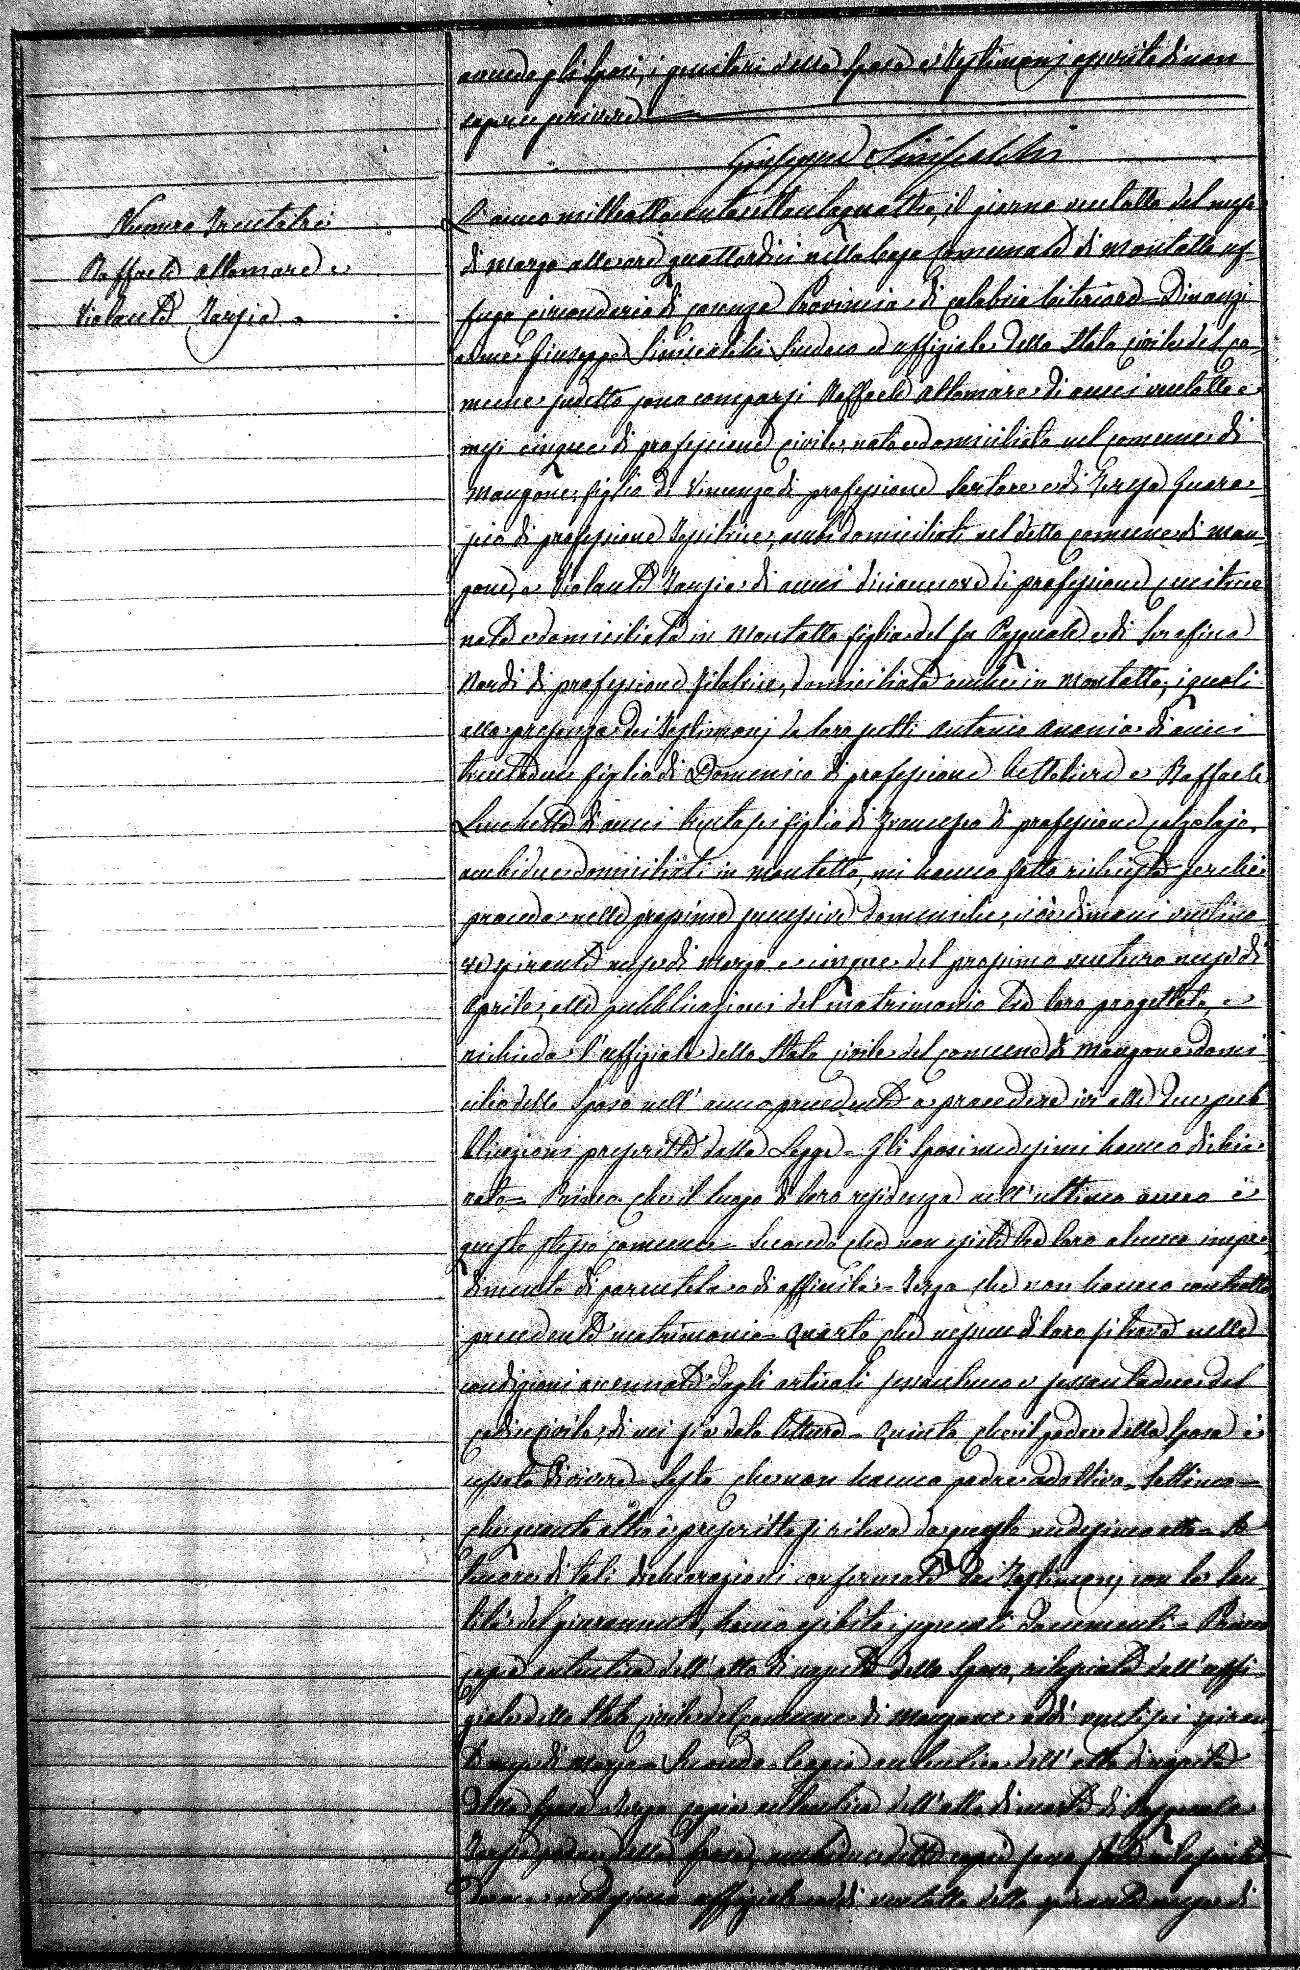 avendo gli Sposi, i genitori della Sposa e i Testimonj asserito di non
sapere scrivere
Giuseppe Siniscalchi
Numero Trentatrè
Raffaele Altomare e
Violante Tarsia
L'anno milleottocentosettantaquattro, il giorno ventotto del mese
di Marzo alle ore quattordici nella Casa Comunale di Montalto Uf-
fugo Circondario di Cosenza Provincia di Calabria Citeriore - Dinanzi
a me Giuseppe Siniscalchi Sindaco ed uffiziale dello Stato Civile del Co-
mune sudetto sono comparsi Raffaele Altomare di anni ventotto e
mesi cinque di professione civile, nato e domiciliato nel comune di
Mangone, figlio di Vincenzo di professione Sartore e di Teresa
di professione Tessitrice, ambi domiciliati nel detto comune di Man-
gone, e Violante Tarsia di anni diciannove di professione cucitrice
nata e domiciliata in Montalto figlia del fu Pasquale e di Serafina
Nardi di professione filatrice, domiciliata anche in Montalto, i quali
alla presenza dei Testimonj da loro scelti Antonio Anania di anni
trentadue figlio di Domenico di professione Bettoliere e Raffaele
Lucchetta di anni trentasei figlio di Francesco di professione calzolajo,
ambidue domiciliati in Montalto, mi hanno fatto richiesta perchè
proceda nelle prossime successive domeniche, cioè dimani ventino
ve spirante mese di Marzo e cinque del prossimo venturo mese di
Aprile, alle pubblicazioni del matrimonio tra loro progettato, e
richieda l'uffiziale dello Stato civile del comune di Mangone domi
cilio dello Sposo nell'anno precedente a procedere ivi alle due pub
blicazioni prescritte dalla Legge - Gli Sposi medesimi hanno dichia
rato - Primo che il luogo di loro residenza nell'ultimo anno è
questo stesso comune - Secondo che non esiste tra loro alcuno impe
dimento di parentela o di affinità - Terzo che non hanno contratto
precedente matrimonio - Quarto che nessuno di loro si trova nelle
condizioni accennate dagli articoli sessantuno e sessantadue del
codice civile, di cui si è data lettura - Quinto che il padre della Sposa è
cessato di vivere - Sesto che non hanno padre adottivo - Settimo -
che quanto altro è prescritto si rileva da questo medesimo atto - A
tenore di tali dichiarazioni confermate dai Testimonj con la san
tità del giuramento, hanno esibito i seguenti documenti - Primo
copia autentica dell'atto di nascita dello Sposo, rilasciata dall'uffi-
ziale dello Stato civile del Comune di Mangone addì ventisei spiran
te mese di Marzo - Secondo Coppia autentica dell'atto di nascita
della Sposa e Terzo copia autentica dell'atto di morte di Pasquale
Tarsia padre della Sposa, ambidue dette copie sono state rilasciate
da me medesimo uffiziale addì ventotto dello spirante mese di